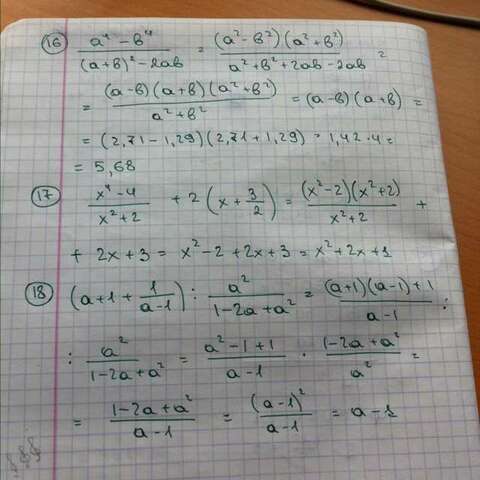 16 (a⁴ - b⁴)/((a+b)² - 2ab) = ((a² - b²)(a² + b²))/(a² + b² + 2ab - 2ab) =
= ((a-b)(a+b)(a²+b²))/(a² + b²) = (a-b)(a+b) =
= (2,71 - 1,29)(2,71 + 1,29) = 1,42 · 4 =
= 5,68
17 (x⁴ - 4)/(x² + 2) + 2(x + 3/2) = ((x² - 2)(x² + 2))/(x² + 2) +
+ 2x + 3 = x² - 2 + 2x + 3 = x² + 2x + 1
18 (a + 1 + 1/(a-1)) : a²/(1 - 2a + a²) = ((a+1)(a-1) + 1)/(a-1) :
: a²/(1 - 2a + a²) = (a² - 1 + 1)/(a-1) · (1 - 2a + a²)/a² =
= (1 - 2a + a²)/(a-1) = (a-1)²/(a-1) = a - 1